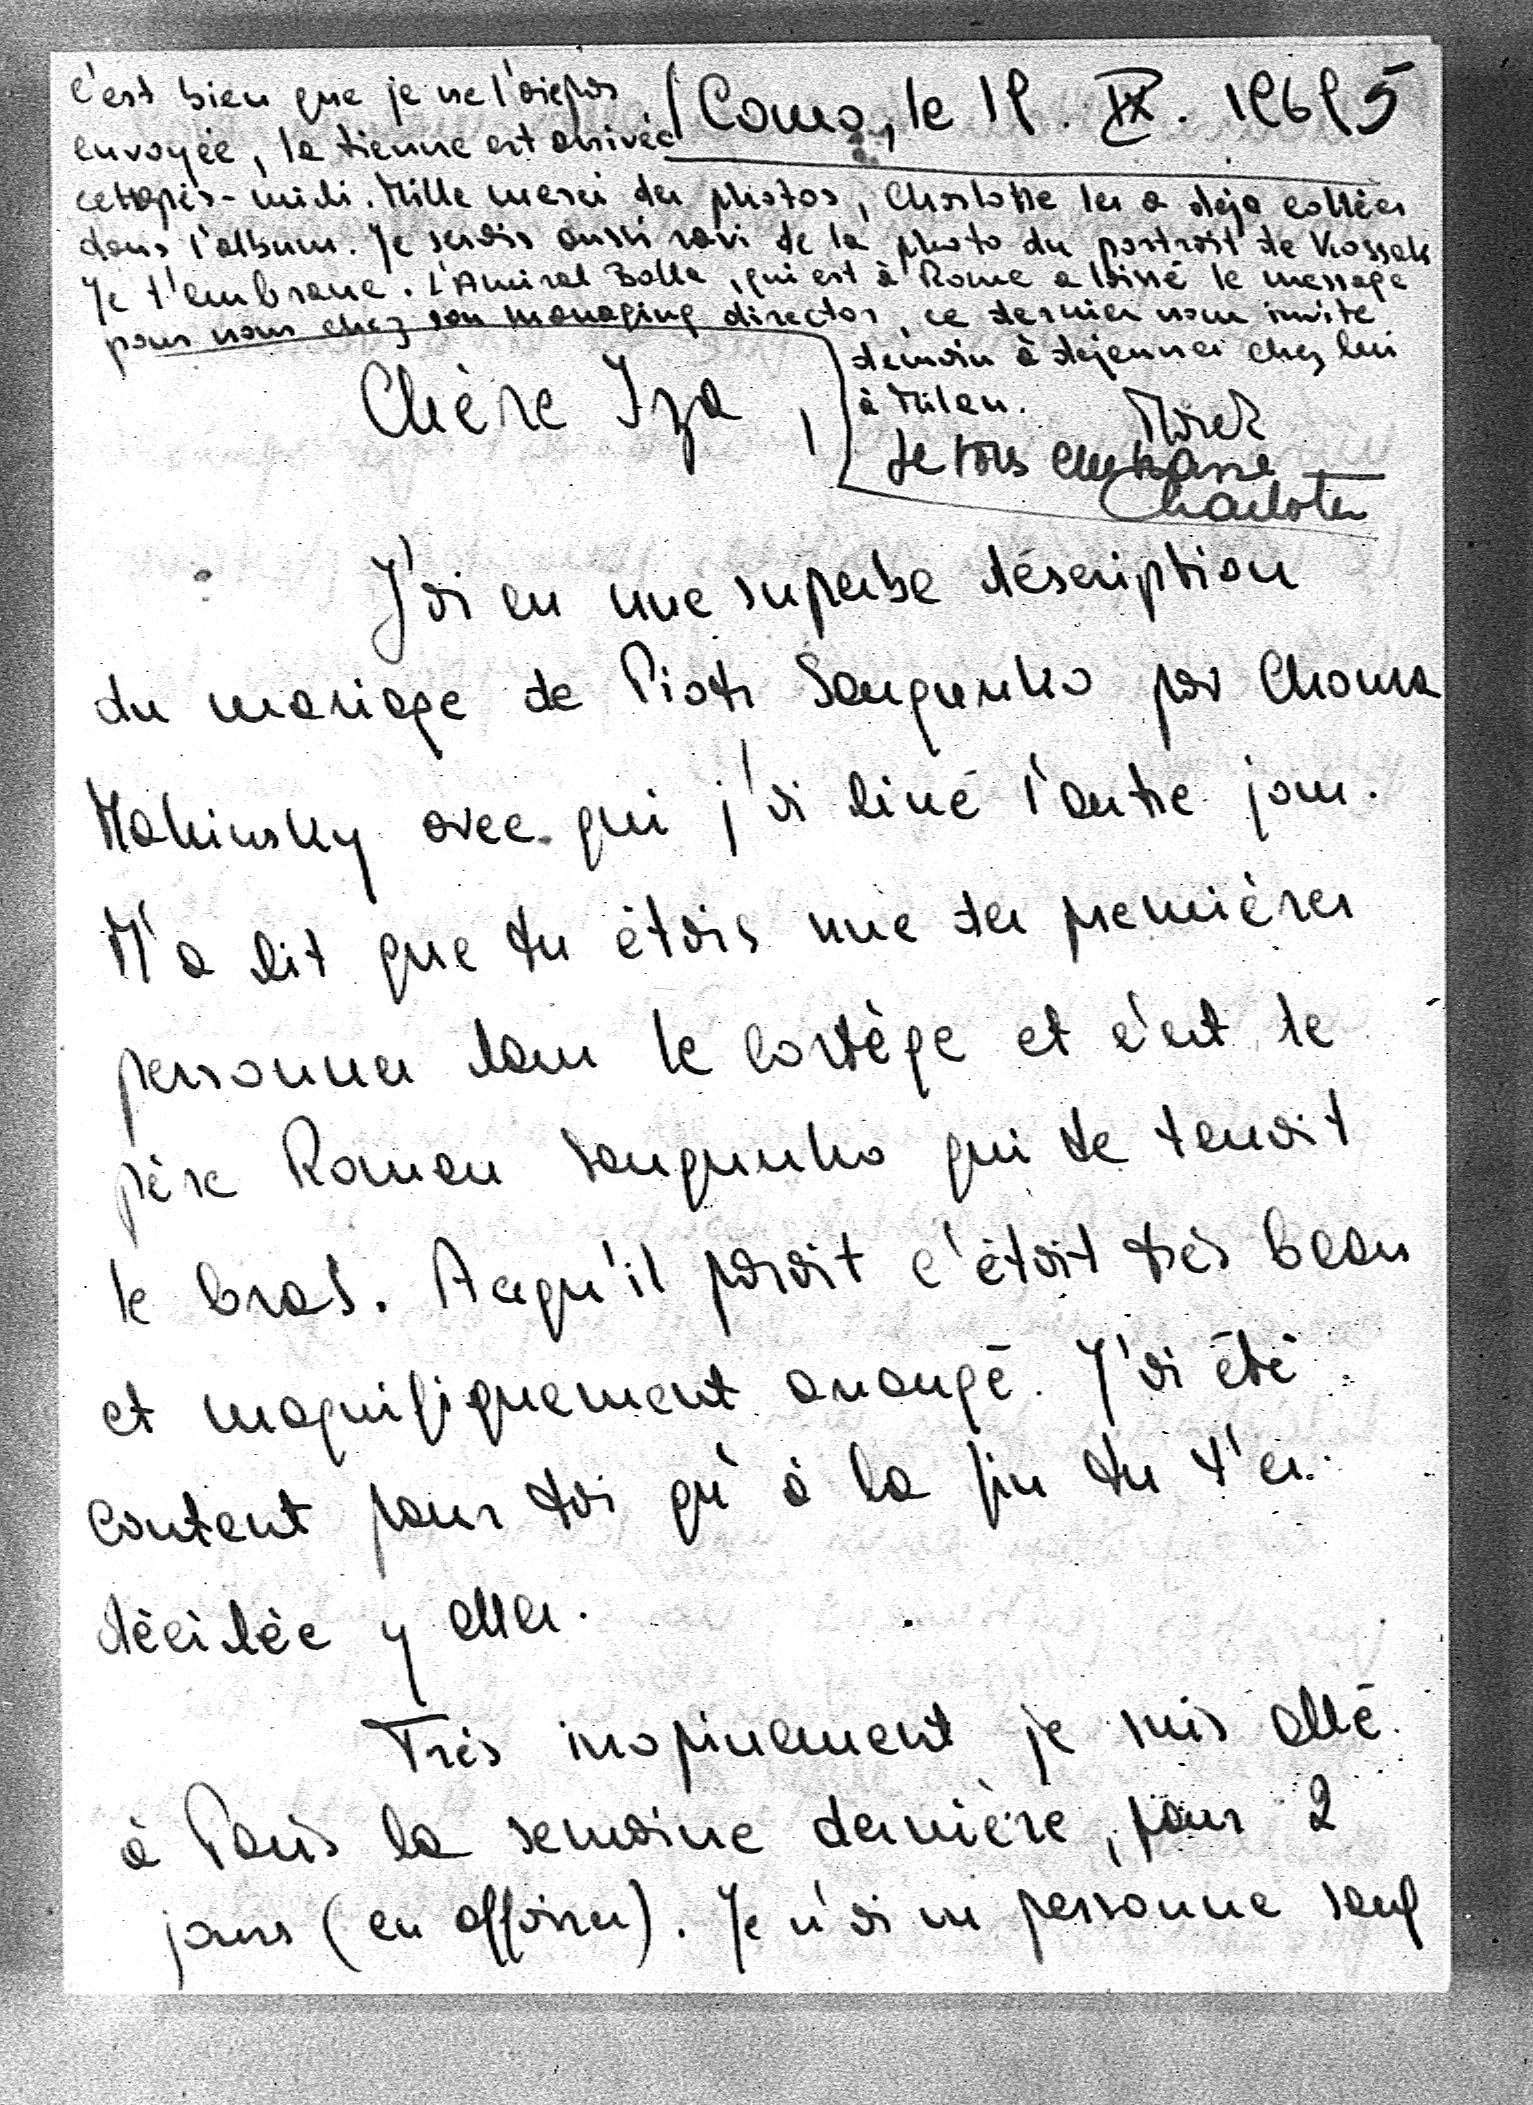 c'est bien que je ne l'aie pas
envoyée, la tienne est arrivée
cet après-midi. Mille merci des photos, Charlotte les a déjà collées
dans l'album. Je serais aussi ravi de la photo du portrait de Kossak
Je t'embrasse. L'Amiral Balla, qui est à Rome a laissé le message
pour nous chez son managing director, ce dernier nous invite
demain à dejeuner chez lui
à Milan.
Mirek
Je vous embrasse
Charlotte
Como, le 19. IX. 1969 5
Chère Iza,
J'ai eu une superbe déscription
du mariage de Piotr Sanguszko par Choura
Makinsky avec qui j'ai diné l'autre jour.
M'a dit que tu étais une des premières
personnes dans le cortège et c'est le
père Roman Sanguszko qui te tenait
le bras. A ce qu'il parait c'était très beau
et magnifiquement arrangé. J'ai été
content pour toi qu'à la fin tu t'es
décidée y aller.
Très inopinement je suis allé
à Paris la semaine dernière, pour 2
jours (en affaires). Je n'ai vu personne sauf